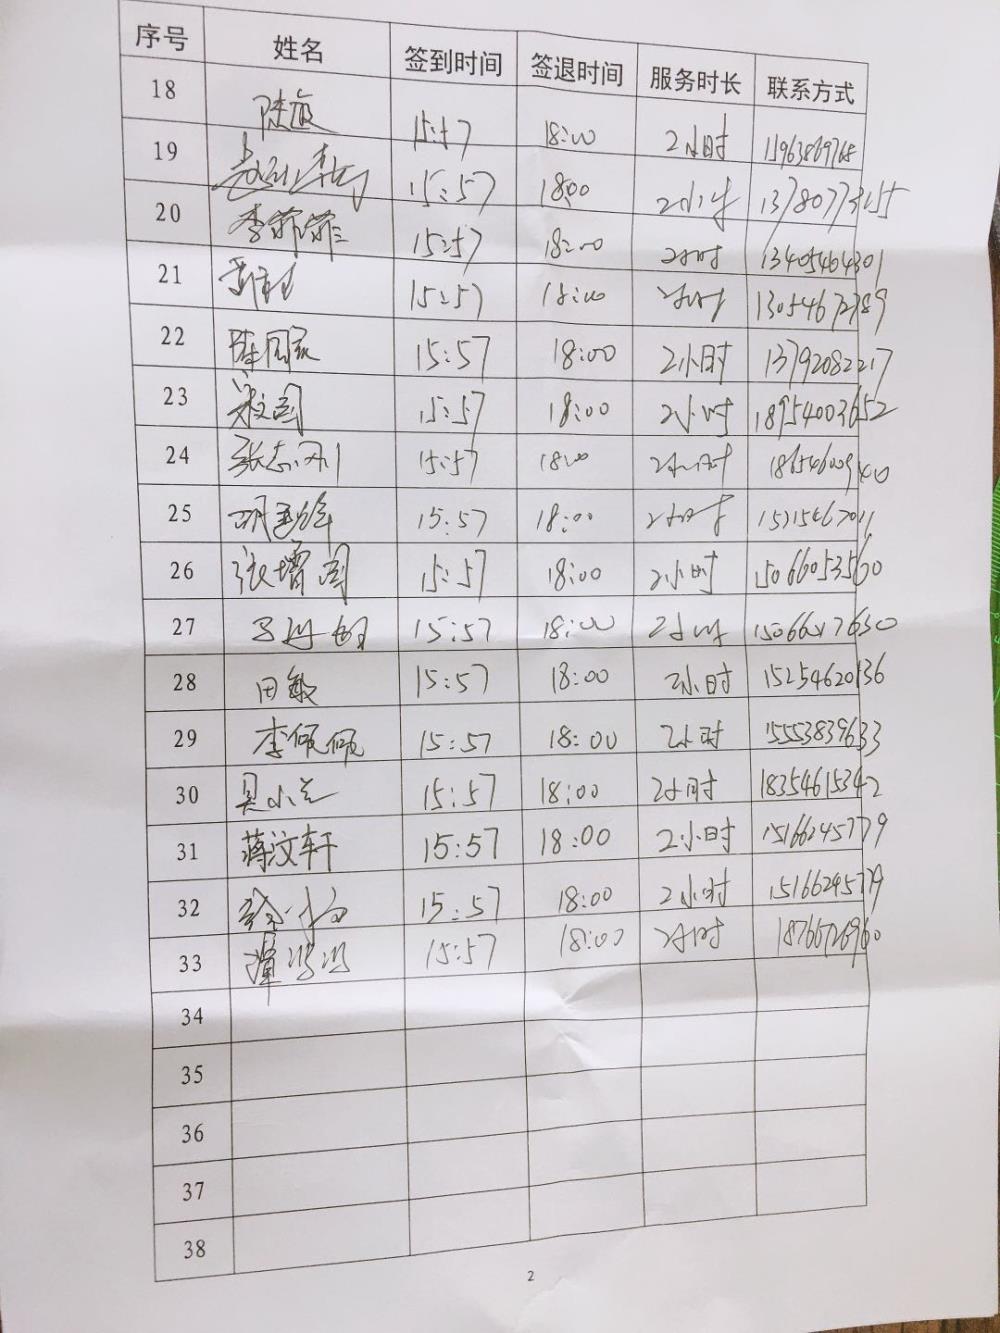 序号 姓名 签到时间 签退时间 服务时长 联系方式
18 15:57 18:00 2小时
19 15:57 18:00 2小时
20 李菲菲 15:57 18:00 2小时 13405464301
21 15:57 18:00 2小时
22 15:57 18:00 2小时 13792082217
23 15:57 18:00 2小时 18954003652
24 张志刚 15:57 18:00 2小时
25 15:57 18:00 2小时
26 张增国 15:57 18:00 2小时 15066053560
27 15:57 18:00 2小时 15066517630
28 田敏 15:57 18:00 2小时 15254620136
29 李佩佩 15:57 18:00 2小时 15553839633
30 15:57 18:00 2小时 18354615342
31 蒋汶轩 15:57 18:00 2小时 15166245779
32 15:57 18:00 2小时 15166245779
33 15:57 18:00 2小时 18766726960
34
35
36
37
38
2